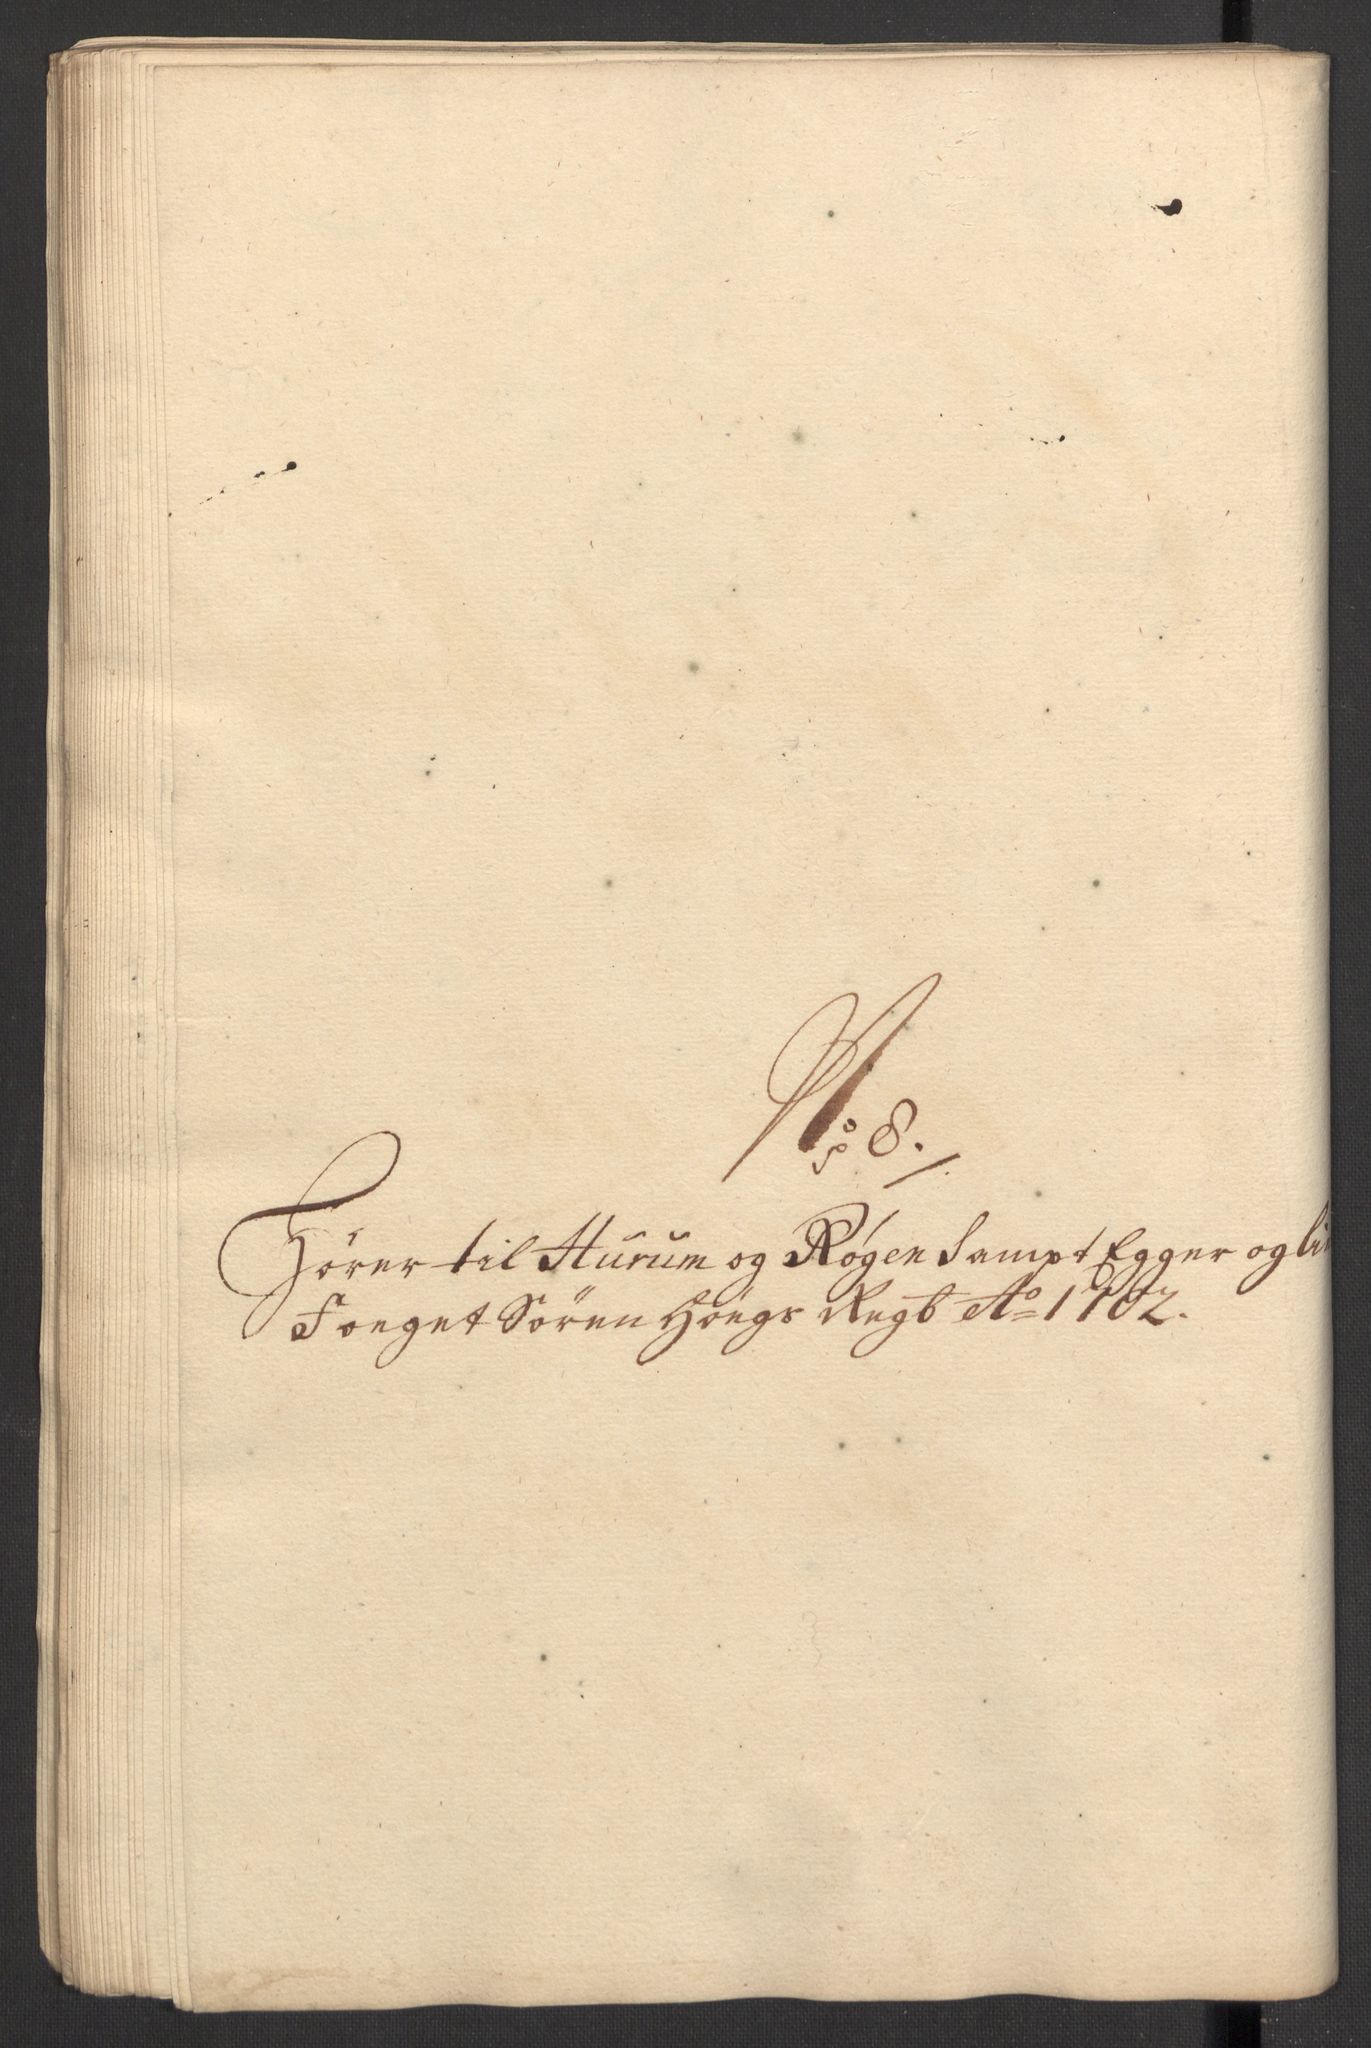 No 8.
Hörer til Hurum og Røgen Sampt Egger og li
Foeget Sören Höegs Regb Ao 1702.